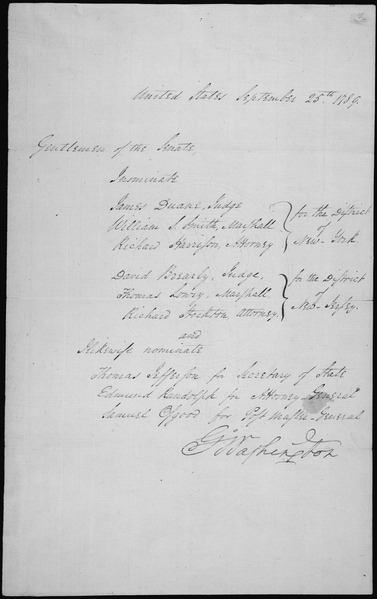 United States September 25th 1789.
Gentlemen of the Senate,
I nominate
James Duane, Judge
William S. Smith, Marshall
Richard Harrison, Attorney
for the District
of
New-York
David Brearly, Judge,
Thomas Lowry, Marshall
Richard Stockton, attorney.
for the District
of
New-Jersey.
and
I likewise nominate
Thomas Jefferson for Secretary of State
Edmund Randolph for Attorney-General
Samuel Osgood for Post Master-General
Go. Washington